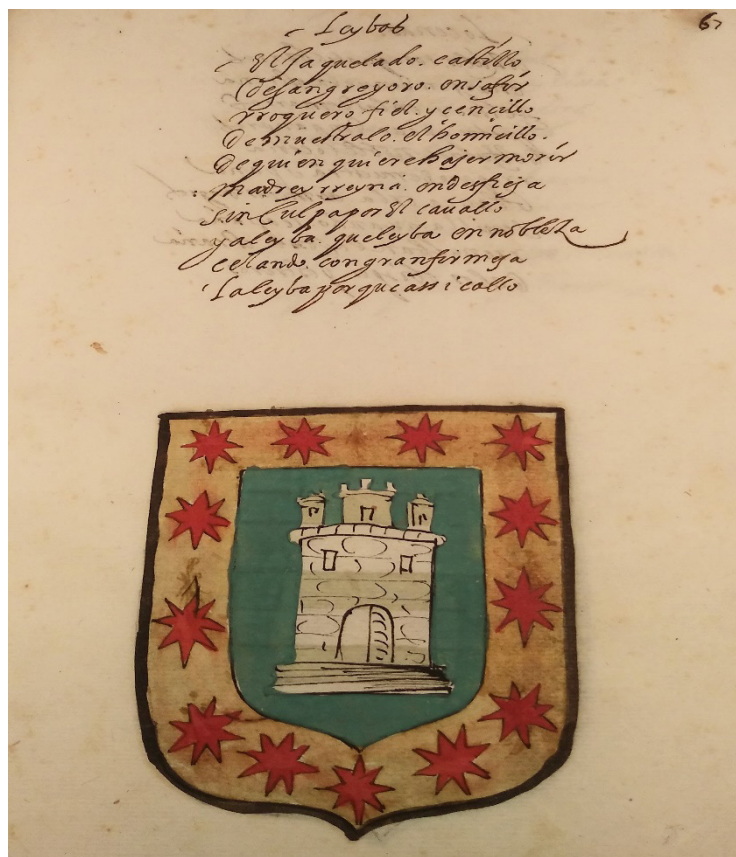 Leybas
67
El Jaquelado. castillo
de sangre y oro. en safir
rroquero fiel. y cencillo
demuestralo. el homicillo.
de quien quiere haser morir
madre y rreyna. en desfiesa
sin culpa por el cavallo
y a leyba. que leyba en nobleza
celando. con gran firmesa
la leyba porque assi callo